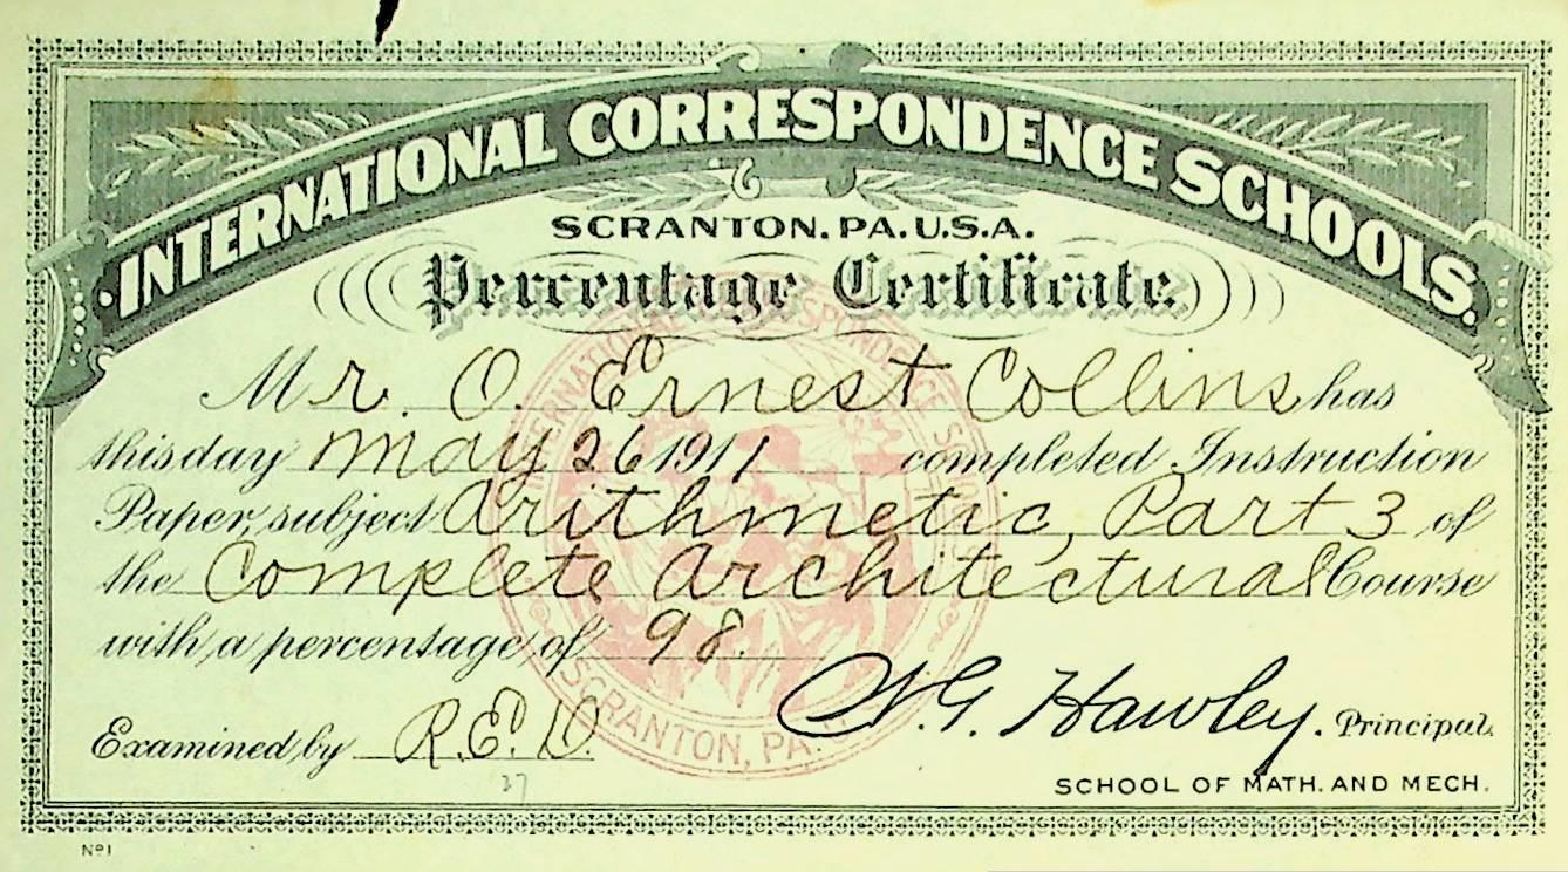 INTERNATIONAL CORRESPONDENCE SCHOOLS.
SCRANTON, PA. U.S.A.
Percentage Certificate.
Mr. O. Ernest Collins has
this day May 26 1911 completed Instruction
Paper, subject Arithmetic, Part 3 of
the Complete Architectural Course
with a percentage of 98.
Examined by R.E.D.
37
W. G. Hawley. Principal.
SCHOOL OF MATH. AND MECH.
INTERNATIONAL CORRESPONDENCE SCHOOLS
SCRANTON, PA.
Nº1